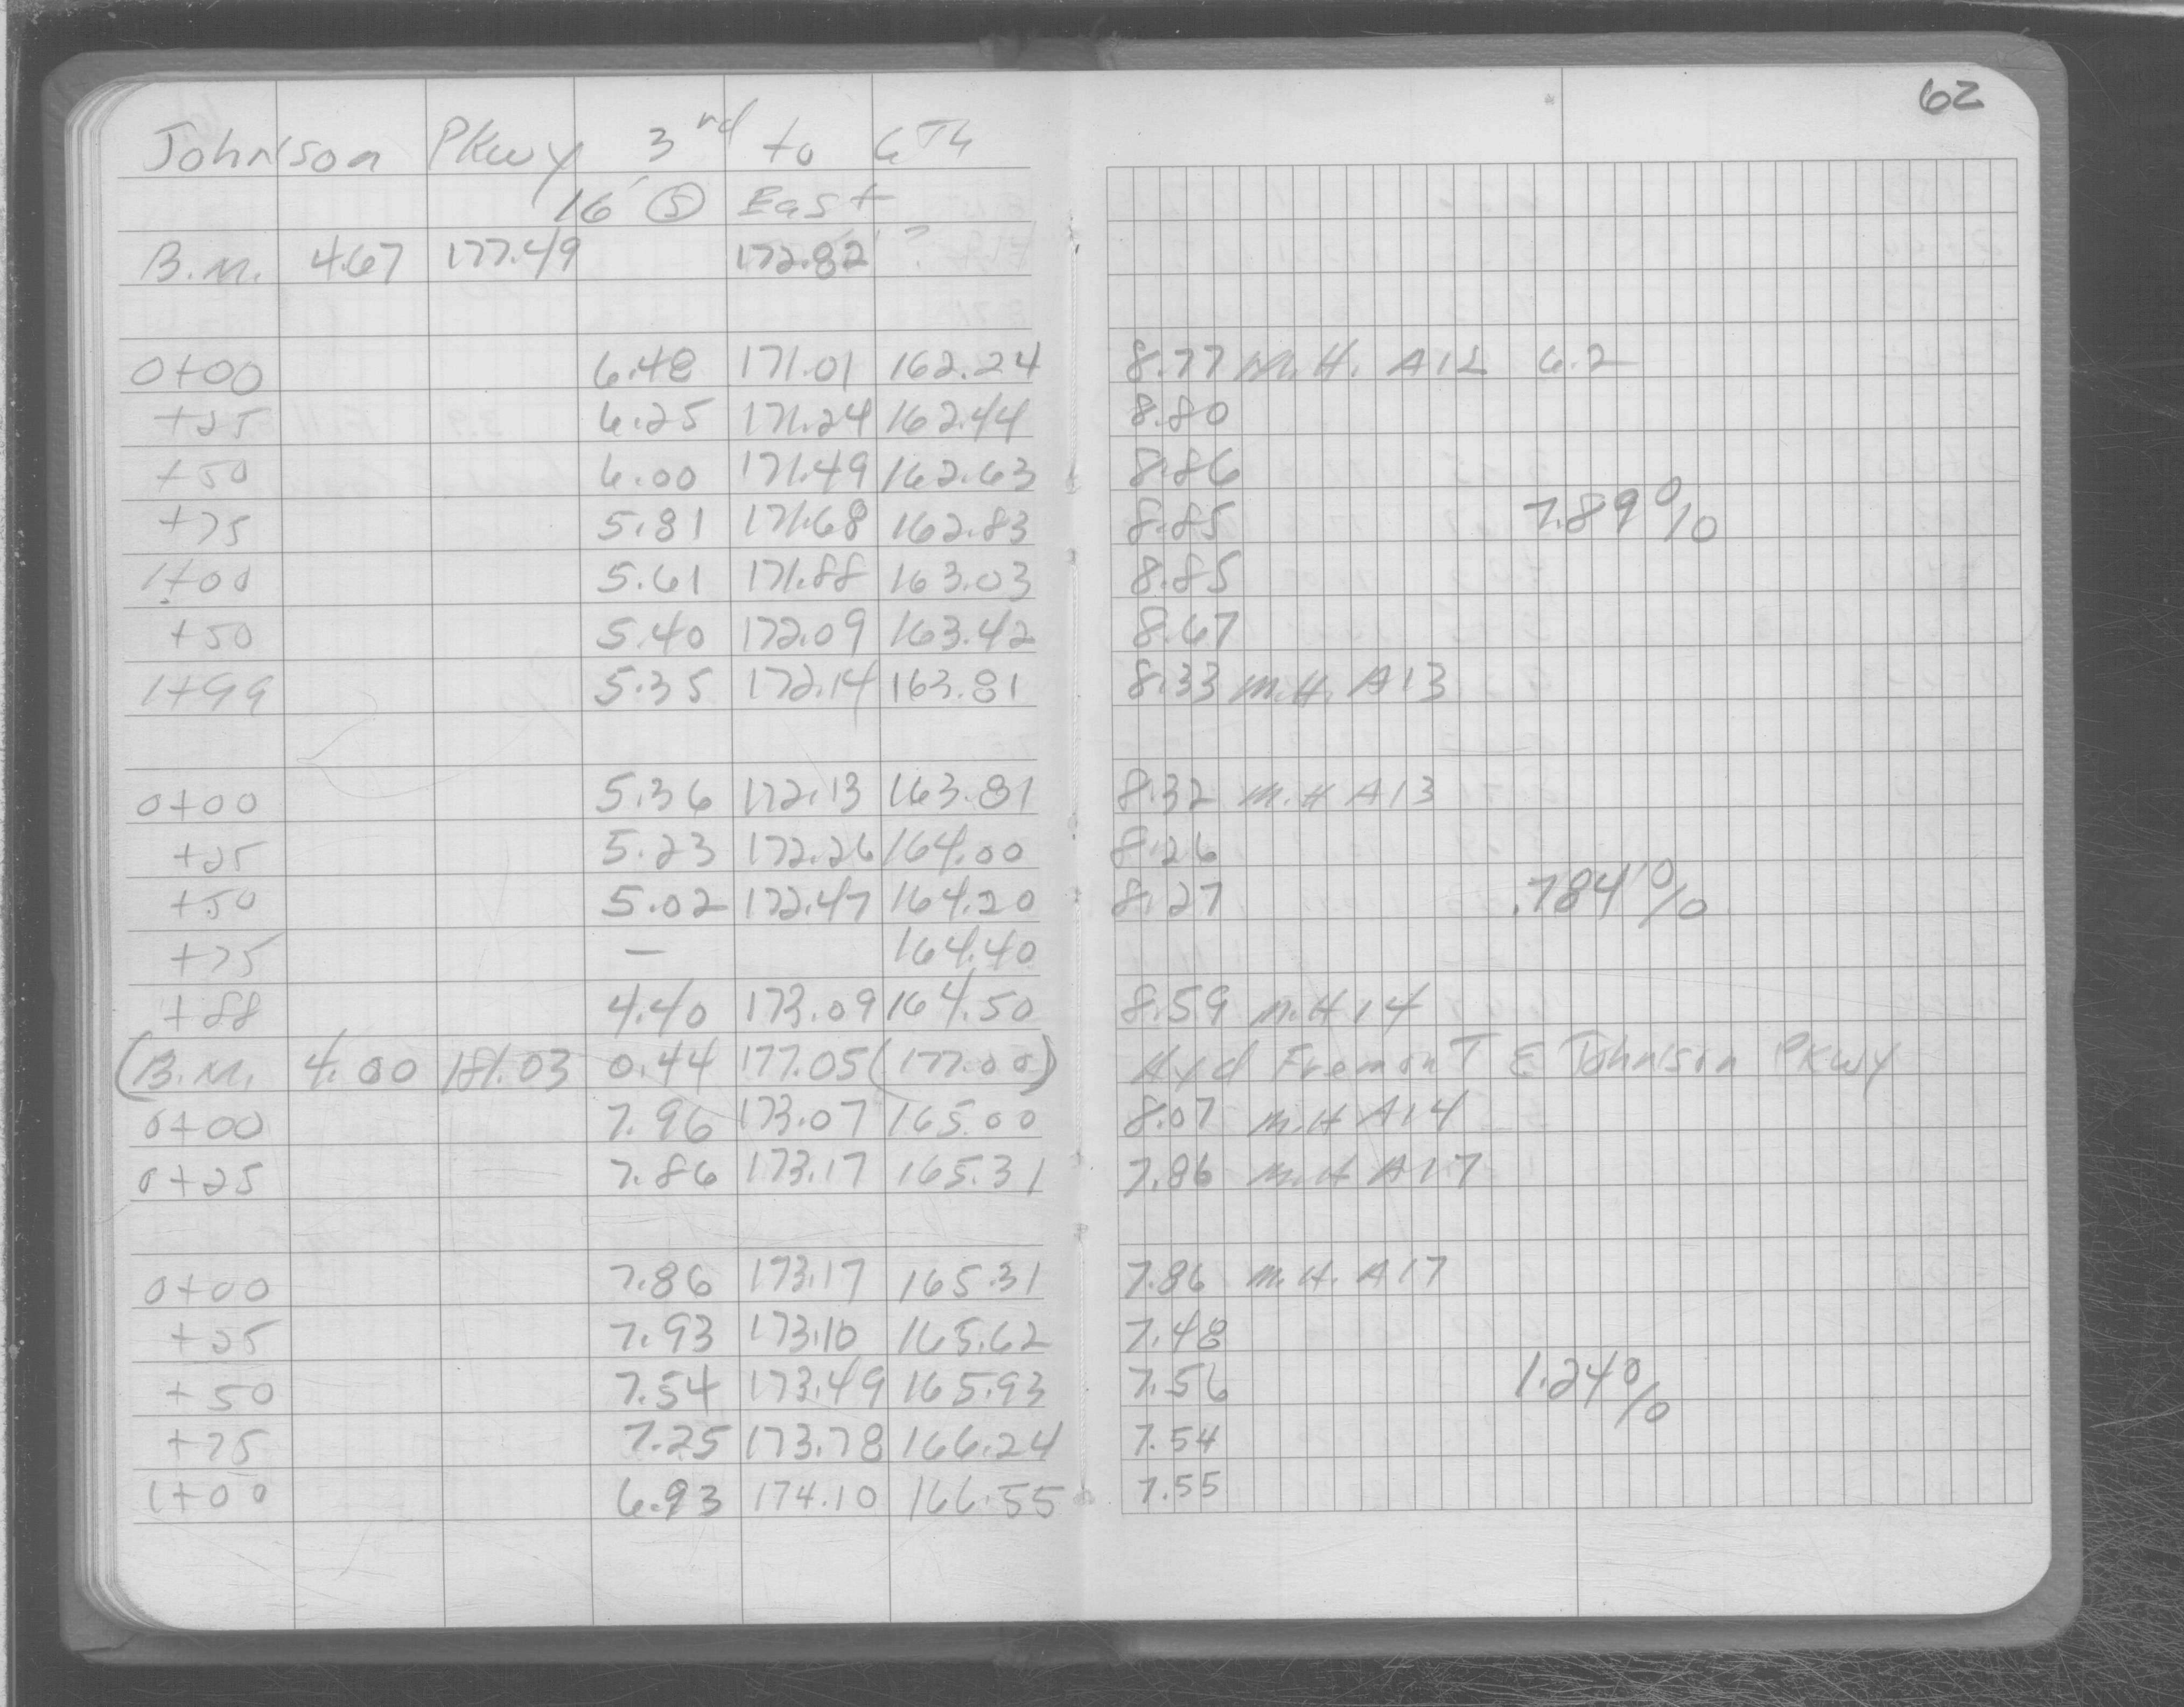 62
Johnson PKwy 3rd to 6Th
16' (S) East
B.M. 4.67 177.49 172.82 ?
0+00 6.48 171.01 162.24 8.77 M.H. A12 6.2
+25 6.25 171.24 162.44 8.80
+50 6.00 171.49 162.63 8.86
+75 5.81 171.68 162.83 8.85 7.89%
1+00 5.61 171.88 163.03 8.85
+50 5.40 172.09 163.42 8.67
1+99 5.35 172.14 163.81 8.33 M.H. A13
0+00 5.36 172.13 163.81 8.32 M.H A13
+25 5.23 172.26 164.00 8.26
+50 5.02 172.47 164.20 8.27 .784%
+75 — 164.40
+88 4.40 173.09 164.50 8.59 M.H 14
(B.M. 4.00 181.03 0.44 177.05 (177.00) Hyd FremonT E Johnson PKwy
0+00 7.96 173.07 165.00 8.07 M.H A14
0+25 7.86 173.17 165.31 7.86 M.H A17
0+00 7.86 173.17 165.31 7.86 M.H. A17
+25 7.93 173.10 165.62 7.48
+50 7.54 173.49 165.93 7.56 1.24%
+75 7.25 173.78 166.24 7.54
1+00 6.93 174.10 166.55 7.55